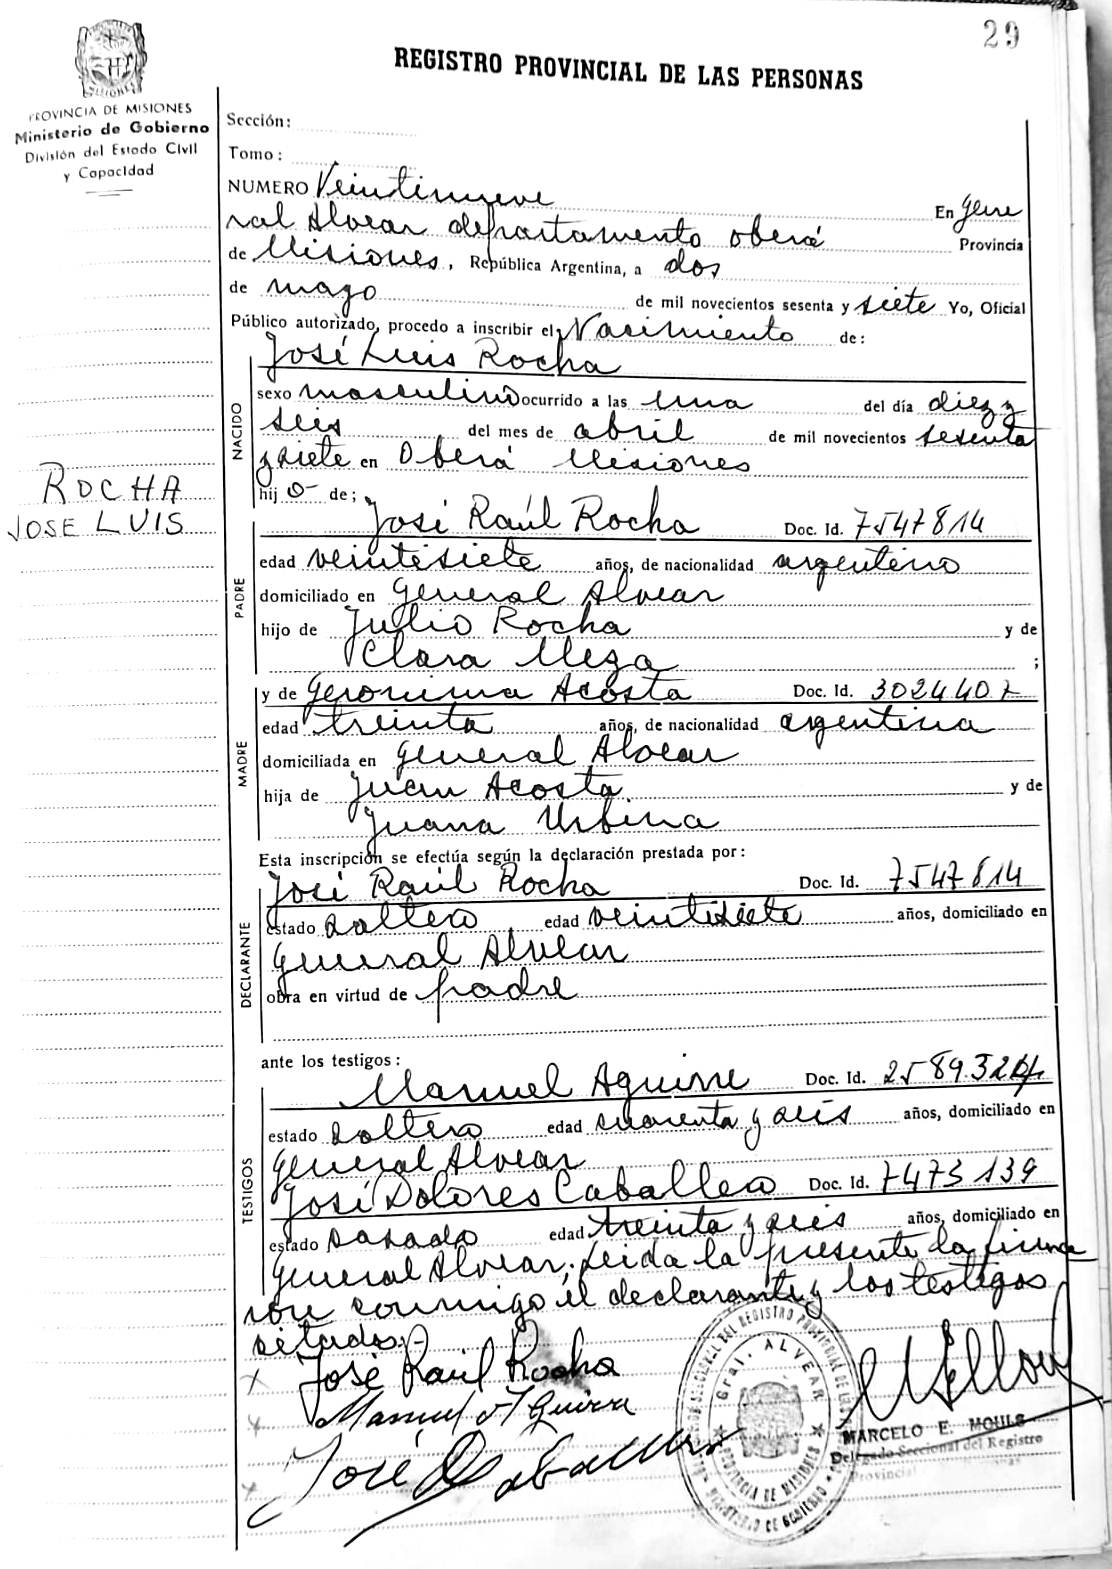 29
REGISTRO PROVINCIAL DE LAS PERSONAS
MISIONES
PROVINCIA DE MISIONES
Ministerio de Gobierno
División del Estado Civil
y Capacidad
Sección:
Tomo:
NUMERO Veintinueve En Gene
ral Alvear departamento oberá Provincia
de Misiones, República Argentina, a dos
de mayo de mil novecientos sesenta y siete Yo, Oficial
Público autorizado, procedo a inscribir el Nacimiento de:
José Luis Rocha
NACIDO
sexo masculino ocurrido a las una del día diez y
seis del mes de abril de mil novecientos sesenta
y siete en Oberá Misiones
ROCHA
JOSE LUIS
hijo de;
José Raúl Rocha Doc. Id. 7547814
PADRE
edad veintisiete años, de nacionalidad argentino
domiciliado en General Alvear
hijo de Julio Rocha y de
Clara Meza ;
y de Geronima Acosta Doc. Id. 3024407
MADRE
edad treinta años, de nacionalidad argentina
domiciliada en General Alvear
hija de Juan Acosta y de
Juana Urbina
Esta inscripción se efectúa según la declaración prestada por:
José Raúl Rocha Doc. Id. 7547814
DECLARANTE
estado soltero edad veintisiete años, domiciliado en
General Alvear
obra en virtud de padre
ante los testigos:
Manuel Aguirre Doc. Id.
TESTIGOS
estado soltero edad cuarenta y seis años, domiciliado en
General Alvear
José Dolores Caballero Doc. Id. 7473139
estado casado edad treinta y seis años, domiciliado en
General Alvear. Leida la presente la firma
ron conmigo el declarante y los testigos
sitados.
José Raúl Rocha
Manuel Aguirre
José D Caballero
Gral. ALVEAR
PROVINCIA DE MISIONES
MINISTERIO DE GOBIERNO
MARCELO E. MOULS
Delegado Seccional del Registro
Provincial